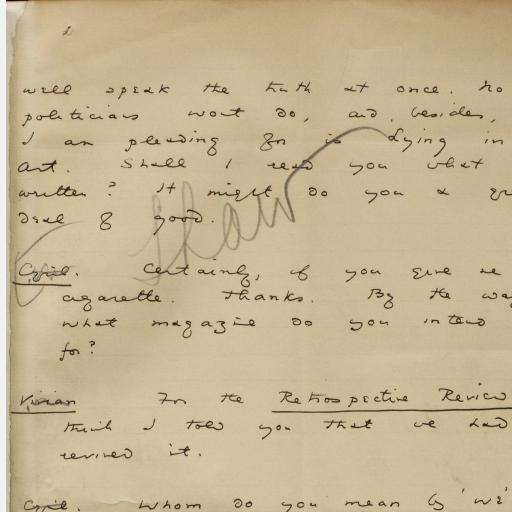 2
well speak the truth at once. No
politicians wont do, and, besides,
I am pleading for is Lying in
Art. Shall I read you what
written? It might do you a
deal of good.
Shaw
Cyril. Certainly, if you give me
cigarette. Thanks. By the way
what magazine do you intend
for?
Vivian For the Retrospective Review
think I told you that we had
revived it.
Cyril. Whom do you mean by 'we'